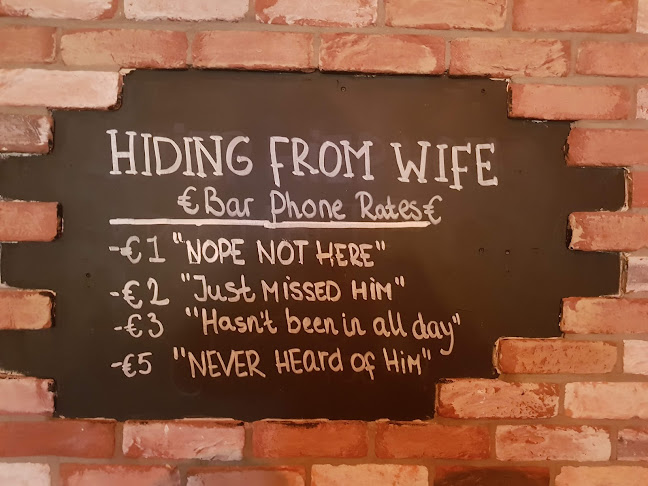 HIDING FROM WIFE
€Bar Phone Rates€
-€1 "NOPE NOT HERE"
-€2 "Just MISSED HiM"
-€3 "Hasn't been in all day"
-€5 "NEVER HEard of HiM"